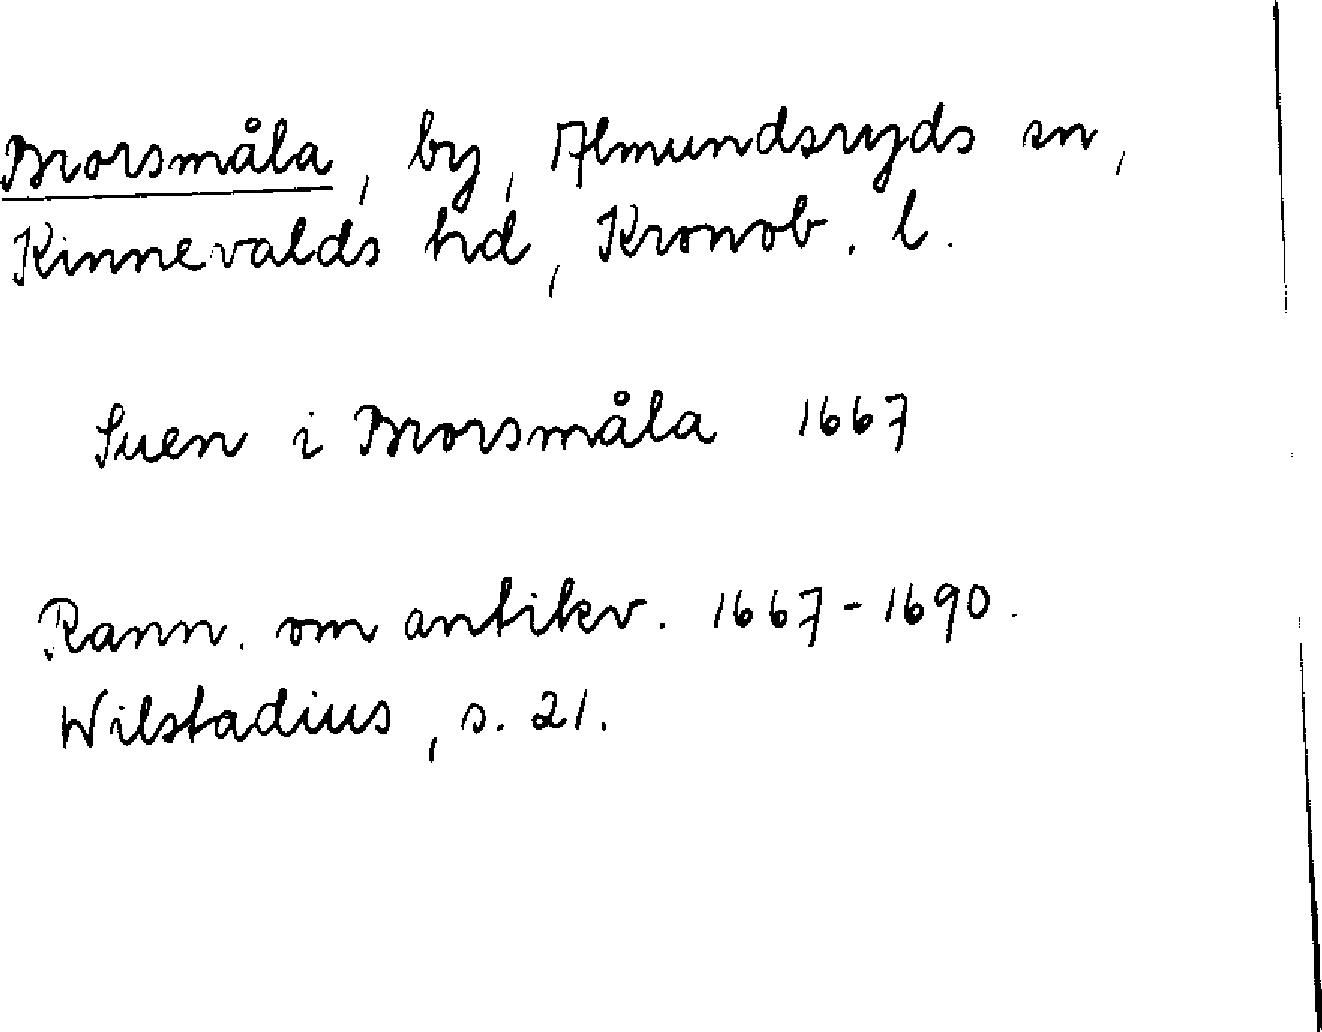 Brorsmåla, by, Almundsryds sn,
Kinnevalds hd, Kronob. l.
Suen i Brorsmåla 1667
Rann. om antikv. 1667-1690.
Wilstadius, s. 21.